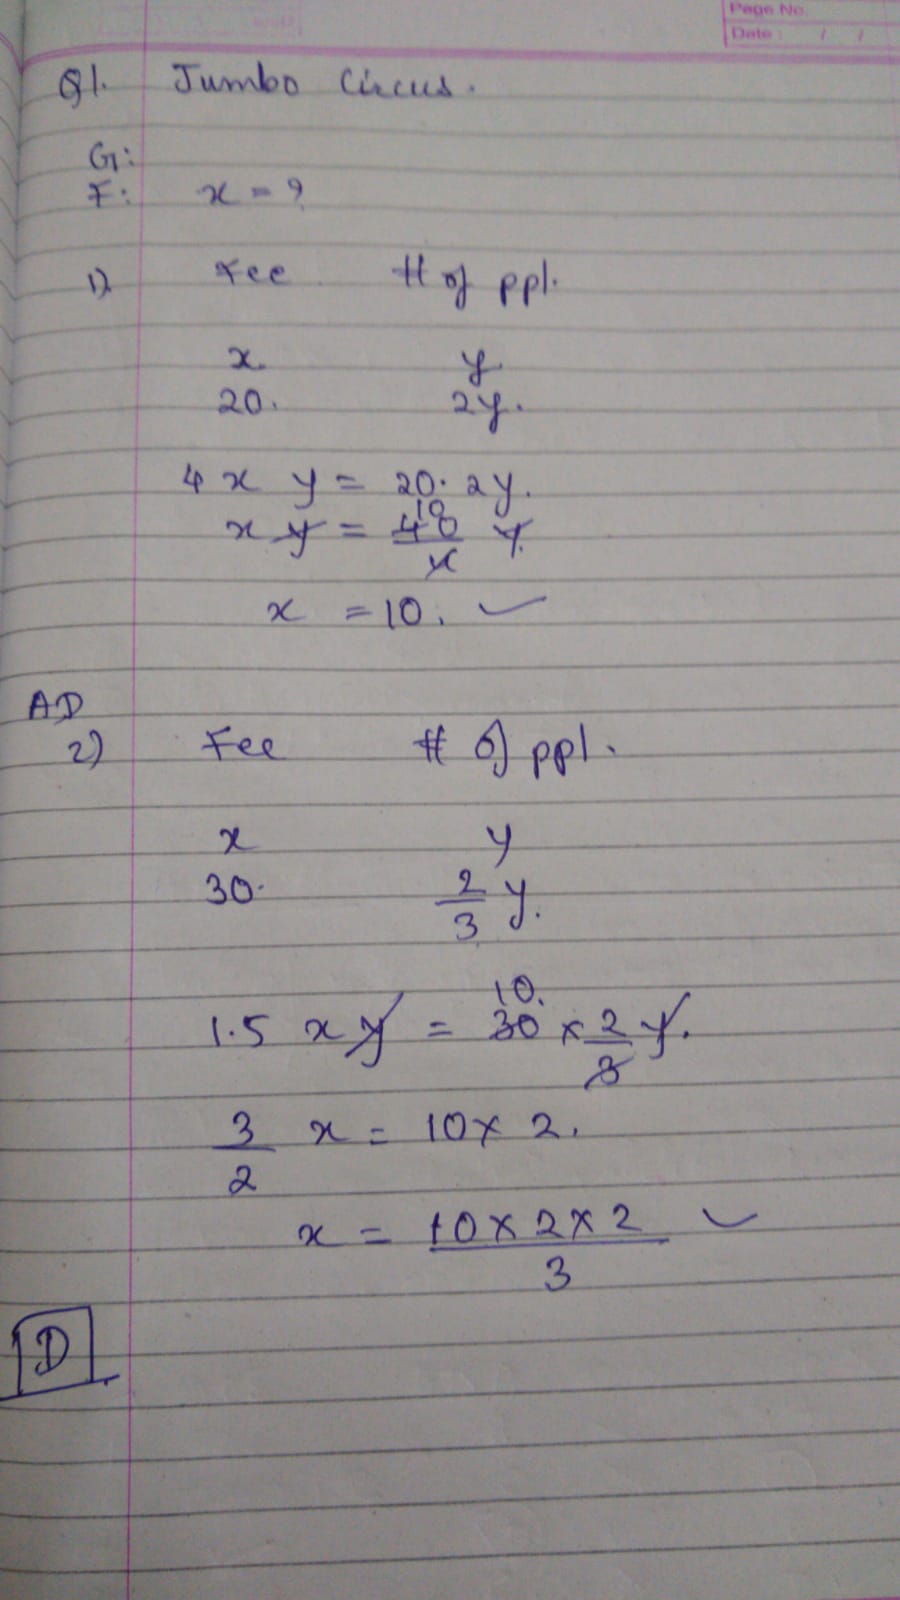 Page No.
Date: / /
Q1. Jumbo Circus.
G:
F: x = ?
1) Fee # of ppl.
x y
20. 2y.
4 x y = 20. 2y.
10
x y = 40/4 y.
x = 10. ✓
AD
2) Fee # of ppl.
x y
30. 2/3 y.
10.
1.5 x y = 30 × 2/3 y.
3/2 x = 10 × 2.
x = 10 × 2 × 2 / 3 ✓
D